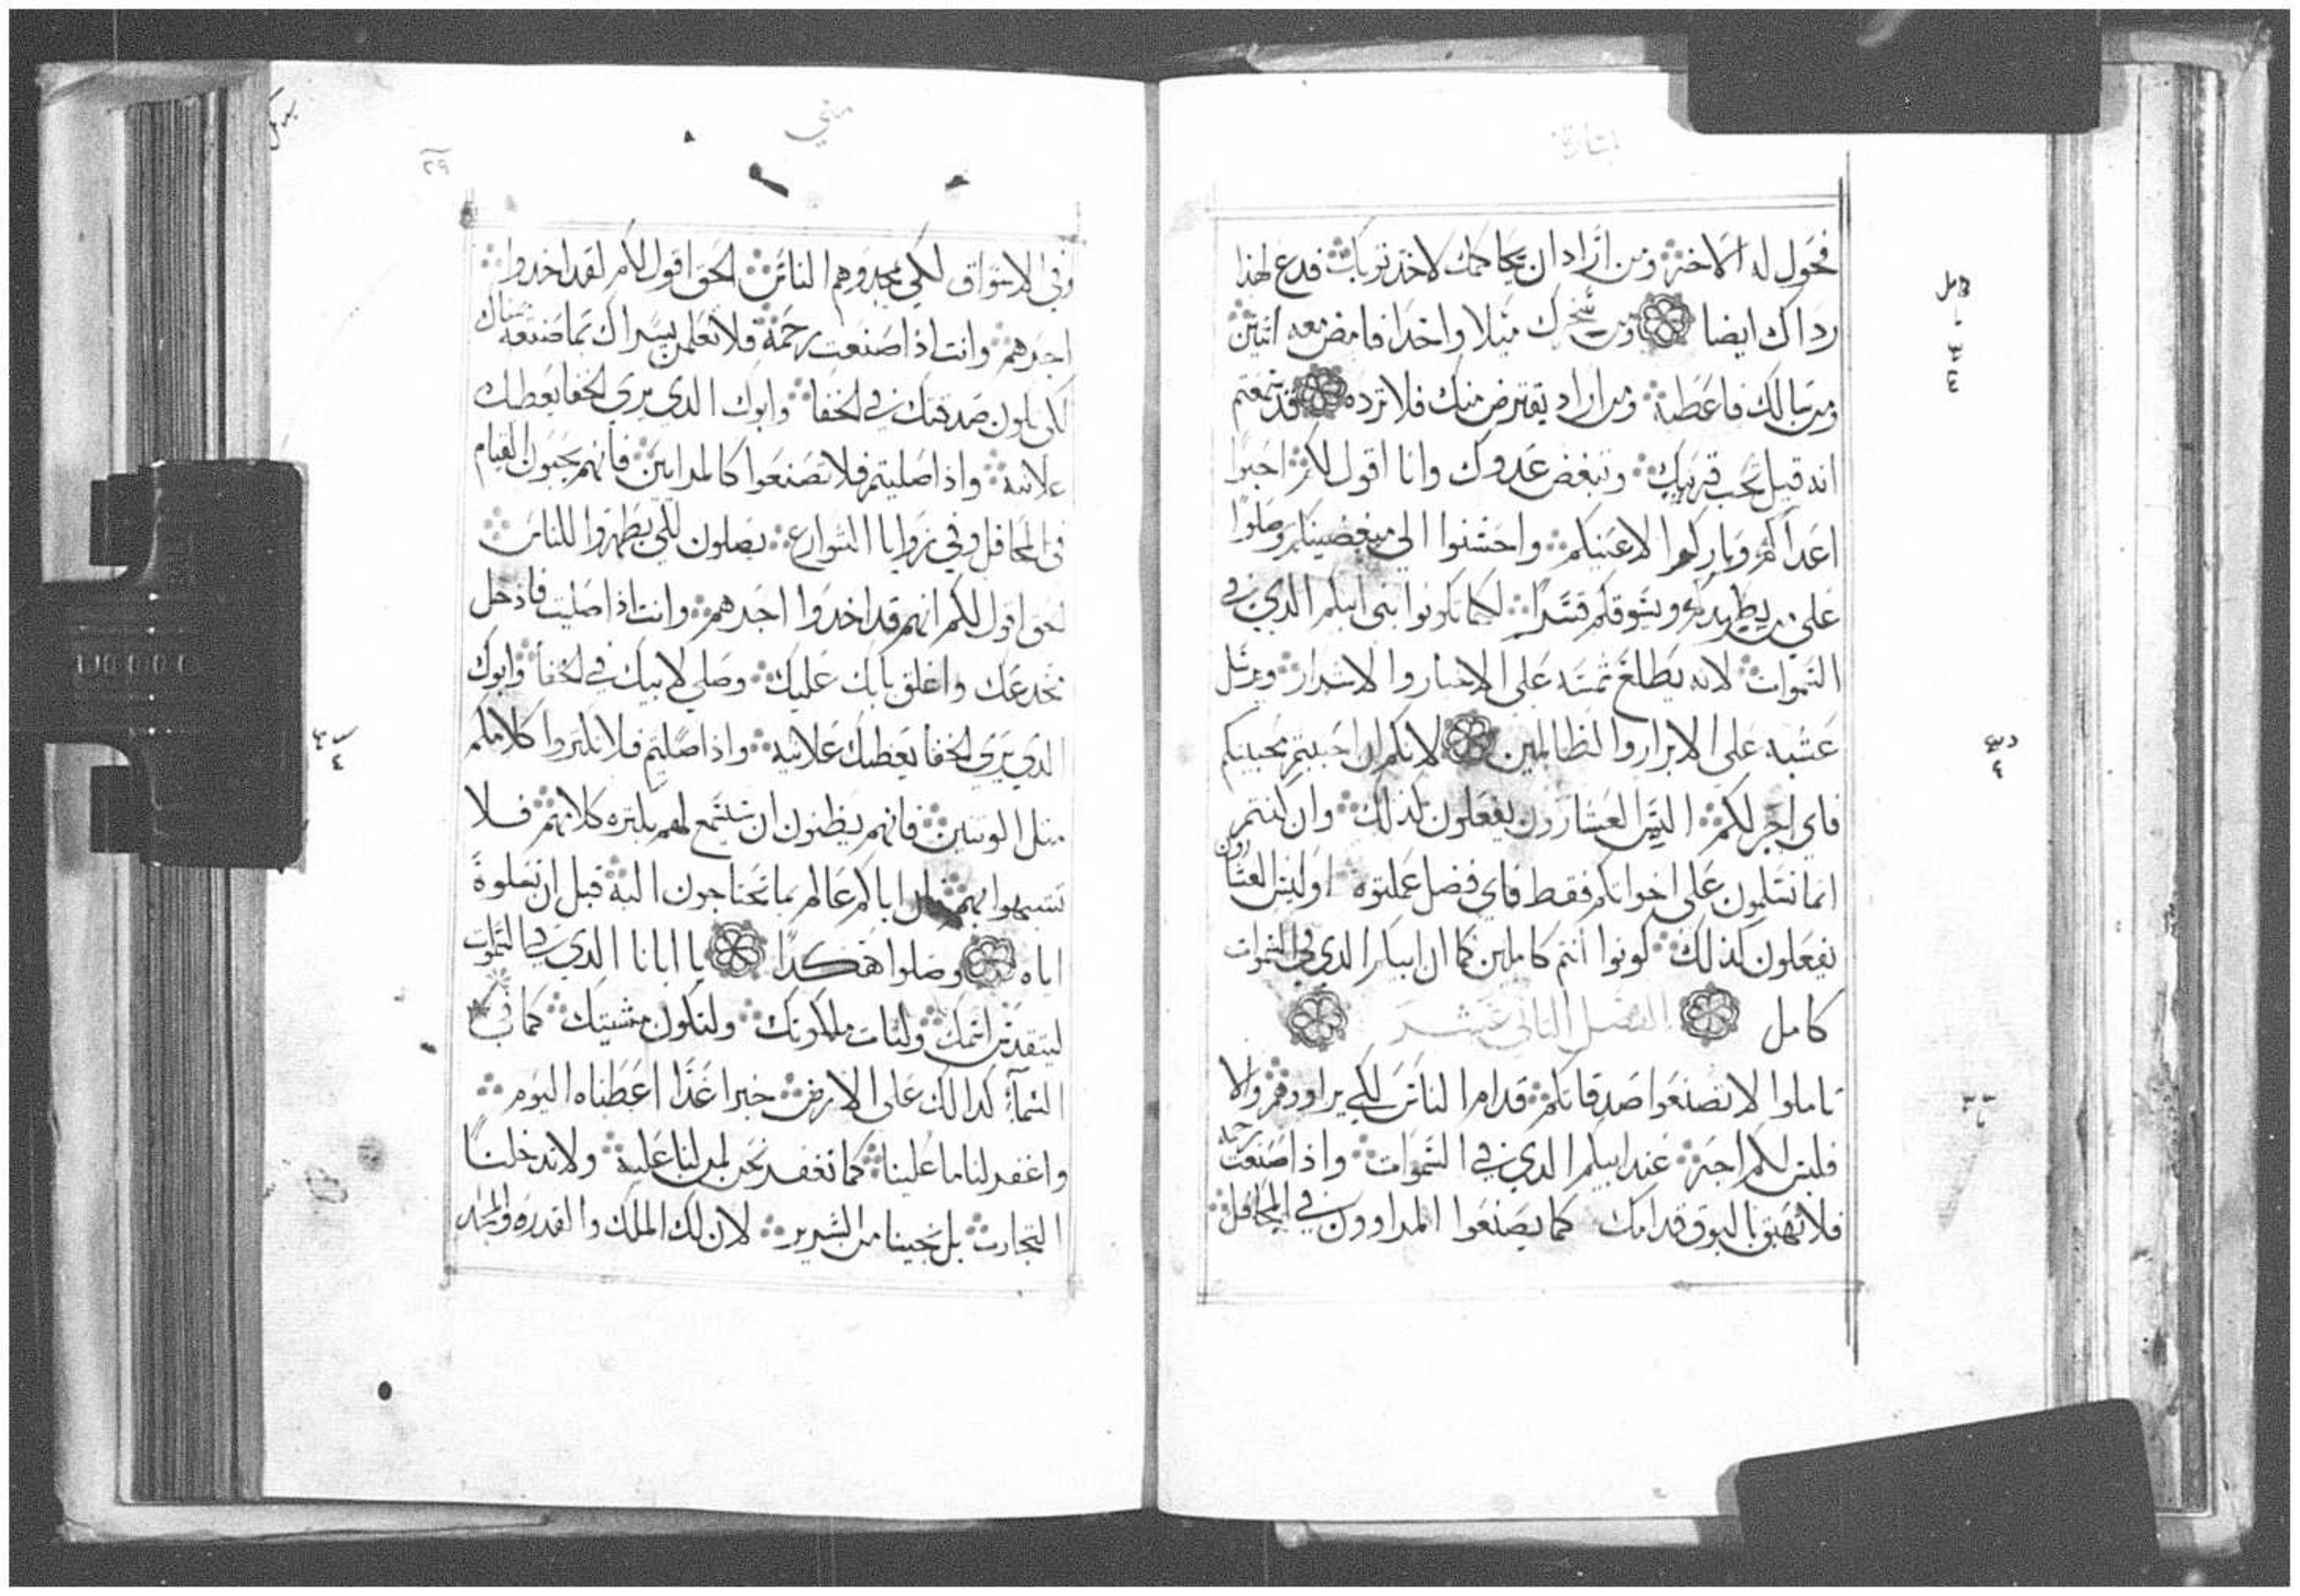 بشارة
فحول له الاخر ومن اراد ان يحاكمك لاخذ ثوبك فدع لهذا
رداك ايضا ومن سخرك ميلا واحدا فامض معه اثنين
ومن سالك فاعطه ومن اراد يقترض منك فلا ترده قد سمعتم
انه قيل تحب قريبك وتبغض عدوك وانا اقول لكم احبوا
اعداكم وباركوا لاعنيكم واحسنوا الى مبغضينكم وصلوا
على من يطردكم ويسوقكم قسرا لكيما تكونوا بني ابيكم الذي في
السموات لانه يطلع شمسه على الاخيار والاشرار ويرسل
عشبه على الابرار والظالمين لانكم ان احببتم محبينكم
فاي اجر لكم اليس العشارون يفعلون كذلك وان كنتم
انما تسلمون على اخوانكم فقط فاي فضل عملتوه اوليس العشارون
يفعلون كذلك كونوا انتم كاملين كما ان ابيكم الذي في السموات
كامل الفصل الثاني عشر
تاملوا لا تصنعوا صدقاتكم قدام الناس لكي يراوهم والا
فليس لكم اجر عند ابيكم الذي في السموات واذا صنعت رحمة
فلا تهتف بالبوق قدامك كما يصنعوا المراوون في المحافل
متي
٢٩
وفي الاسواق لكي يمجدوهم الناس الحق اقول لكم لقد اخدوا
اجرهم وانت اذا صنعت رحمة فلا تعلمن يسراك بما صنعته يمناك
لكي تكون صدقتك في الخفا وابوك الدي يرى الخفا يعطيك
علانيه واذا صليتم فلا تصنعوا كالمرايين فانهم يحبون القيام
في المحافل وفي زوايا الشوارع يصلون لكي يظهروا للناس
لحق اقول لكم انهم قد اخدوا اجرهم وانت اذا صليت فادخل
مخدعك واغلق بابك عليك وصلي لابيك في الخفا وابوك
الدي يرى الخفا يعطيك علانيه واذا صليتم فلا تكثروا كلامكم
مثل الوثنيين فانهم يظنون ان يستمع لهم بكثره كلامهم فلا
تتشبهوا بهم اباكم عالم بما تحتاجون اليه قبل ان تسلوه
اياه وصلوا هكدا يا ابانا الدي في السموات
ليتقدس اسمك ولتات ملكوتك ولتكون مشيتك كما في
السمآ كدالك على الارض خبزا غدا اعطناه اليوم
واغفر لنا ما علينا كما نغفر نحن لمن لنا عليه ولا تدخلنا
التجارب بل نجينا من الشرير لان لك الملك والقدره والمجد